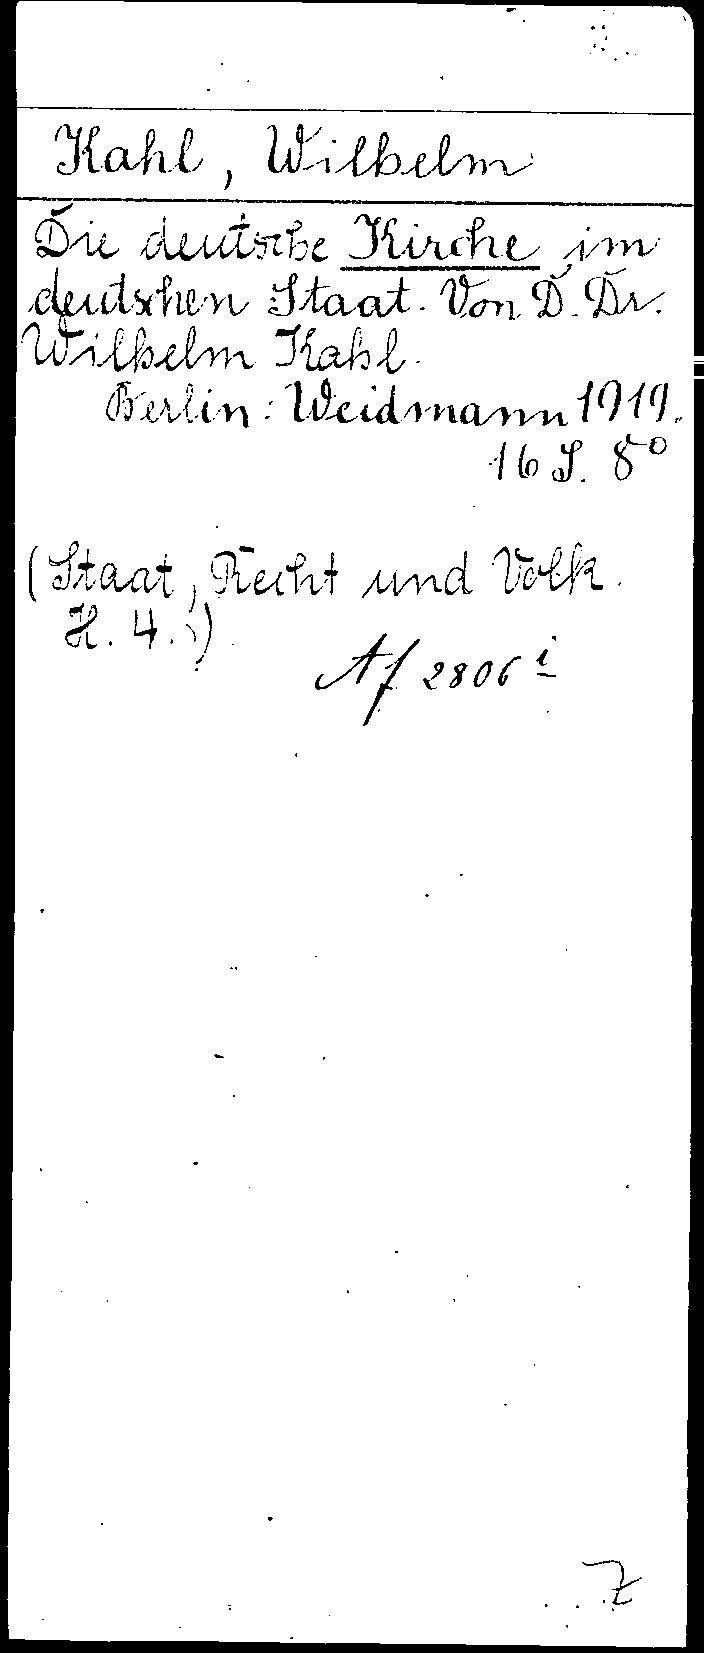 Kahl, Wilhelm
Die deutsche Kirche im
deutschen Staat. Von D. Dr.
Wilhelm Kahl.
Berlin: Weidmann 1919.
16 S. 8°
(Staat, Recht und Volk.
H. 4.)
Af 2806 i
Z